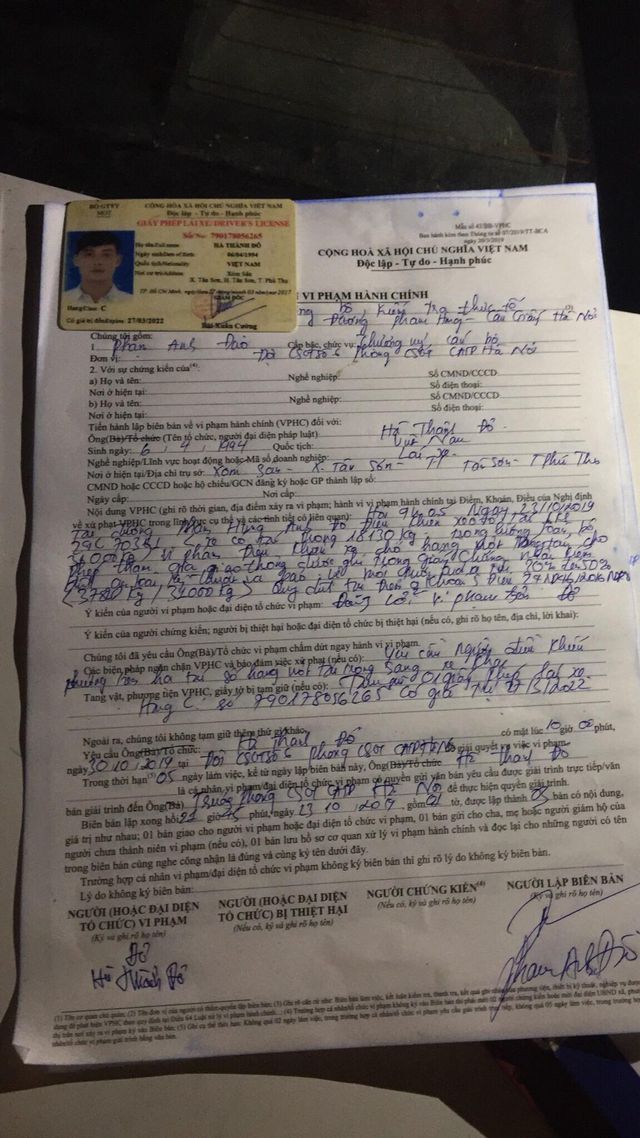 BỘ GTVT
MOT
CỘNG HÒA XÃ HỘI CHỦ NGHĨA VIỆT NAM
Độc lập - Tự do - Hạnh phúc
GIẤY PHÉP LÁI XE/DRIVER'S LICENSE
Số/No: 790178056265
Họ tên/Full name HÀ THÀNH ĐÔ
Ngày sinh/Date of Birth 06/04/1994
Quốc tịch/Nationality VIỆT NAM
Nơi cư trú/Address Xóm San
X. Tân Sơn, H. Tân Sơn, T. Phú Thọ
TP. Hồ Chí Minh, ngày/date 27 tháng/month 03 năm/year 2017
GIÁM ĐỐC
Hạng/Class: C
Có giá trị đến/Expires: 27/03/2022
Bùi Xuân Cường
Mẫu số 43/BB-VPHC
Ban hành kèm theo Thông tư số 07/2019/TT-BCA
ngày 20/3/2019
CỘNG HOÀ XÃ HỘI CHỦ NGHĨA VIỆT NAM
Độc lập - Tự do - Hạnh phúc
VI PHẠM HÀNH CHÍNH
bộ, kiểm tra thực tế
Đường Phạm Hùng - Cầu Giấy Hà Nội
Chúng tôi gồm:
1. Phạm Anh Đào Cấp bậc, chức vụ: Thượng uý, cán bộ
Đơn vị: Đội CSGT số 6 Phòng CSGT CATP Hà Nội
2. Với sự chứng kiến của(4):
a) Họ và tên: Nghề nghiệp: Số CMND/CCCD
Nơi ở hiện tại: Số điện thoại:
b) Họ và tên: Nghề nghiệp: Số CMND/CCCD
Nơi ở hiện tại: Số điện thoại:
Tiến hành lập biên bản về vi phạm hành chính (VPHC) đối với:
Ông(Bà)/Tổ chức (Tên tổ chức, người đại diện pháp luật) Hà Thành Đô
Sinh ngày: 6, 4, 1994 Quốc tịch: Việt Nam
Nghề nghiệp/Lĩnh vực hoạt động hoặc Mã số doanh nghiệp: Lái xe
Nơi ở hiện tại/Địa chỉ trụ sở: Xóm San - X. Tân Sơn - Tân Sơn - T Phú Thọ
CMND hoặc CCCD hoặc hộ chiếu/GCN đăng ký hoặc GP thành lập số:
Ngày cấp: Nơi cấp:
Nội dung VPHC (ghi rõ thời gian, địa điểm xảy ra vi phạm; hành vi vi phạm hành chính tại Điểm, Khoản, Điều của Nghị định
về xử phạt VPHC trong lĩnh vực cụ thể và các tình tiết có liên quan): Hồi 9h 05 Ngày 23/10/2019
Tại đường Phạm Hùng Anh Đô Điều khiển xe
29C 70351 có tải trọng 18130 kg trọng lượng toàn bộ
34000 kg vi phạm Điều khiển xe chở hàng vượt trọng tải cho
phép tham gia giao thông được ghi trong Giấy Chứng nhận kiểm
định An toàn kỹ thuật và bảo vệ môi trường trên 20% đến 50%
(37820 kg / 34000 kg)
Ý kiến của người vi phạm hoặc đại diện tổ chức vi phạm: Đúng lỗi vi phạm trên
Đô
Ý kiến của người chứng kiến; người bị thiệt hại hoặc đại diện tổ chức bị thiệt hại (nếu có, ghi rõ họ tên, địa chỉ, lời khai):
Chúng tôi đã yêu cầu Ông(Bà)/Tổ chức vi phạm chấm dứt ngay hành vi vi phạm.
Các biện pháp ngăn chặn VPHC và bảo đảm việc xử phạt (nếu có): Yêu cầu người điều khiển
phương tiện hạ tải số hàng vượt tải trọng sang xe khác
Tang vật, phương tiện VPHC, giấy tờ bị tạm giữ (nếu có): Tạm giữ 01 giấy phép lái xe
Hạng C: số 790178056265 Có giá trị 27/3/2022
Ngoài ra, chúng tôi không tạm giữ thêm thứ gì khác.
Yêu cầu Ông(Bà)/Tổ chức: Hà Thành Đô có mặt lúc 10 giờ 00 phút,
ngày 30/10/2019 tại Đội CSGT số 6 phòng CSGT CATP HN để giải quyết vụ việc vi phạm.
Trong thời hạn(5) 05 ngày làm việc, kể từ ngày lập biên bản này, Ông(Bà)/Tổ chức Hà Thành Đô
là cá nhân vi phạm/đại diện tổ chức vi phạm có quyền gửi văn bản yêu cầu được giải trình trực tiếp/văn
bản giải trình đến Ông(Bà) Trưởng Phòng CSGT CATP Hà Nội để thực hiện quyền giải trình.
Biên bản lập xong hồi 21 giờ 45 phút, ngày 23/10/2019, gồm 01 tờ, được lập thành 03 bản có nội dung,
giá trị như nhau; 01 bản giao cho người vi phạm hoặc đại diện tổ chức vi phạm, 01 bản gửi cho cha, mẹ hoặc người giám hộ của
người chưa thành niên vi phạm (nếu có), 01 bản lưu hồ sơ cơ quan xử lý vi phạm hành chính và đọc lại cho những người có tên
trong biên bản cùng nghe công nhận là đúng và cùng ký tên dưới đây.
Trường hợp cá nhân vi phạm/đại diện tổ chức vi phạm không ký biên bản thì ghi rõ lý do không ký biên bản.
Lý do không ký biên bản:
NGƯỜI (HOẶC ĐẠI DIỆN TỔ CHỨC) VI PHẠM
(Ký và ghi rõ họ tên)
NGƯỜI (HOẶC ĐẠI DIỆN TỔ CHỨC) BỊ THIỆT HẠI
(Nếu có, ký và ghi rõ họ tên)
NGƯỜI CHỨNG KIẾN(4)
(Nếu có, ký và ghi rõ họ tên)
NGƯỜI LẬP BIÊN BẢN
(Ký và ghi rõ họ tên)
Đô
Hà Thành Đô
Phạm Anh Đào